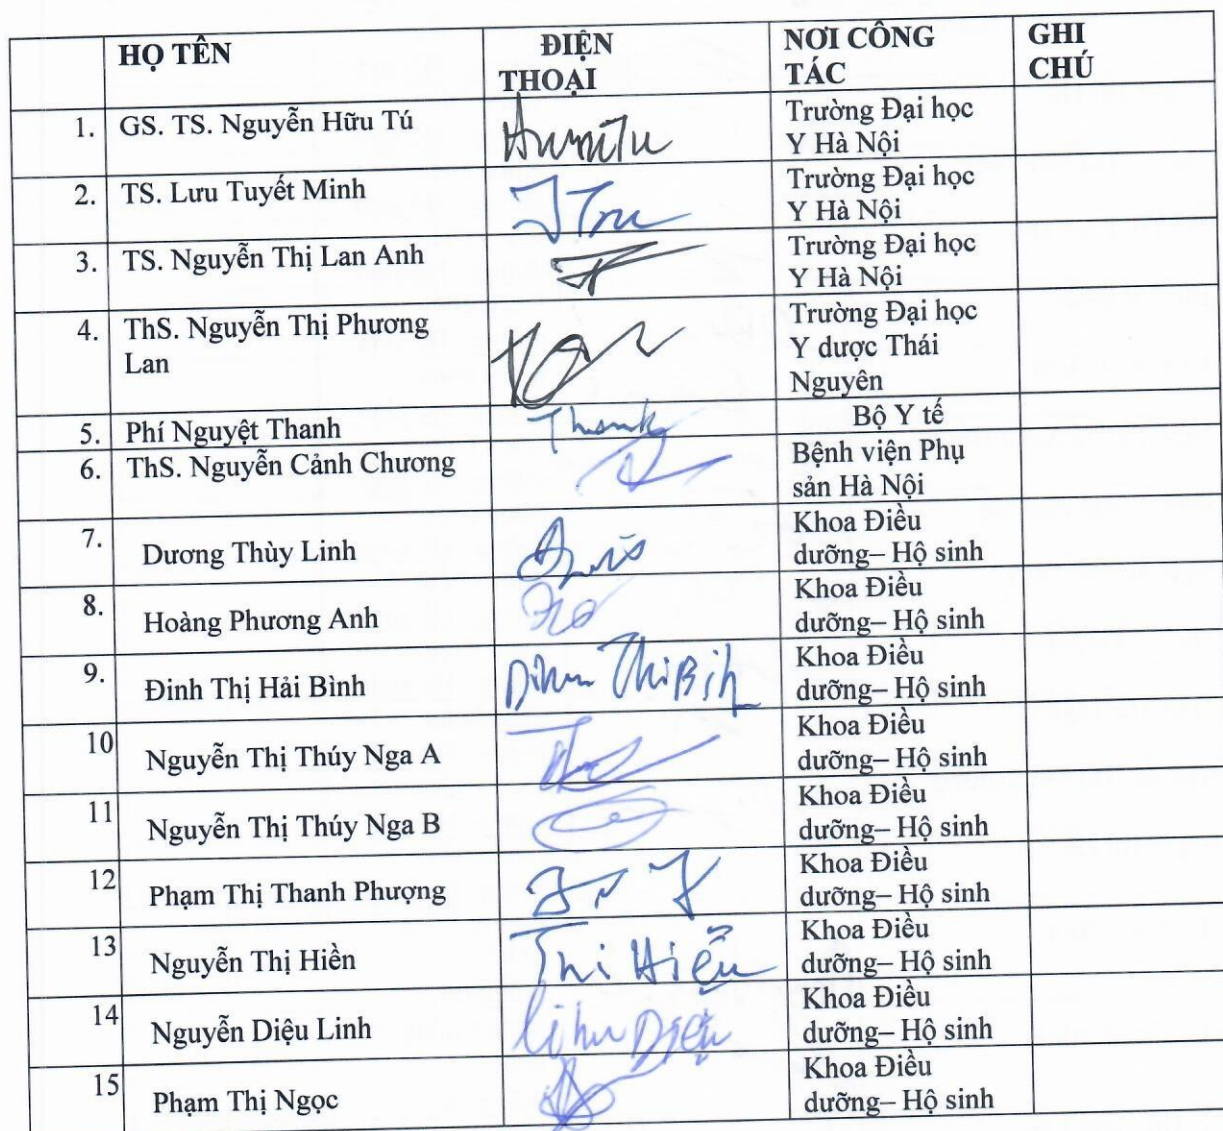 HỌ TÊN ĐIỆN THOẠI NƠI CÔNG TÁC GHI CHÚ
1. GS. TS. Nguyễn Hữu Tú Trường Đại học
Y Hà Nội
2. TS. Lưu Tuyết Minh Trường Đại học
Y Hà Nội
3. TS. Nguyễn Thị Lan Anh Trường Đại học
Y Hà Nội
4. ThS. Nguyễn Thị Phương Trường Đại học
Lan Y dược Thái
Nguyên
5. Phí Nguyệt Thanh Thanh Bộ Y tế
6. ThS. Nguyễn Cảnh Chương Bệnh viện Phụ
sản Hà Nội
7. Dương Thùy Linh Khoa Điều
dưỡng– Hộ sinh
8. Hoàng Phương Anh Khoa Điều
dưỡng– Hộ sinh
9. Đinh Thị Hải Bình Khoa Điều
dưỡng– Hộ sinh
10 Nguyễn Thị Thúy Nga A Khoa Điều
dưỡng– Hộ sinh
11 Nguyễn Thị Thúy Nga B Khoa Điều
dưỡng– Hộ sinh
12 Phạm Thị Thanh Phượng Khoa Điều
dưỡng– Hộ sinh
13 Nguyễn Thị Hiền Khoa Điều
dưỡng– Hộ sinh
14 Nguyễn Diệu Linh Khoa Điều
dưỡng– Hộ sinh
15 Phạm Thị Ngọc Khoa Điều
dưỡng– Hộ sinh